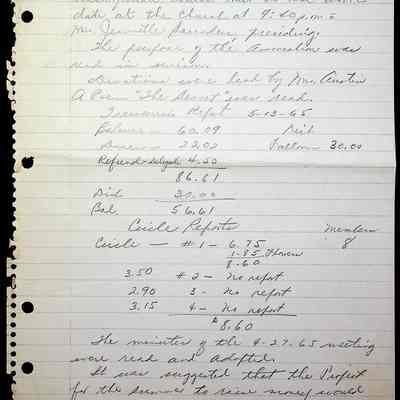 date at the Church at 7:40 p.m.
Mrs. Jeanette Saunders presiding.
The purpose of the Association was
read in unison.
Devotions were lead by Mrs. Austin
A Poem "The Secret" was read.
Treasurers Report 5-13-65
Balance - 60.09 Paid
22.02 30.00
Refund - 4.50
86.61
Paid 30.00
Bal. 56.61
Circle Reports Members
Circle - #1 - 6.75 8
1.85 Flowers
8.60
3.50 #2 - No report
2.90 3 - No report
3.15 4 - No report
$8.60
The minutes of the 4-27-65 meeting
were read and adopted.
It was suggested that the Project
for the summer to raise money would